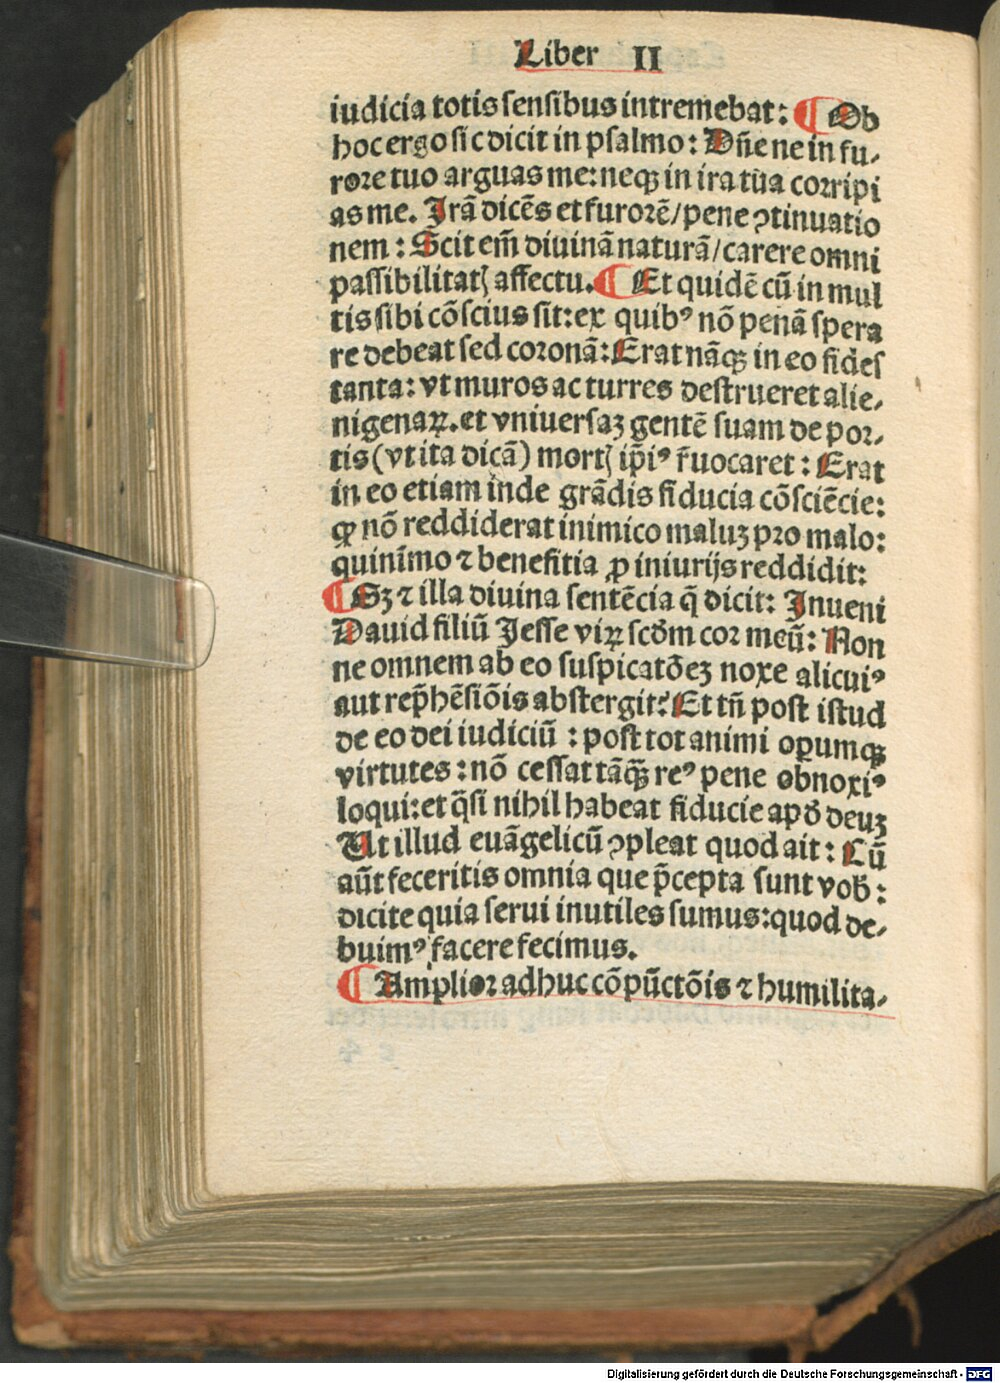 Liber II
iudicia totis sensibus intremebat: ¶ Ob
hoc ergo sic dicit in psalmo: Dñe ne in fu⸗
rore tuo arguas me: neqꝫ in ira tua corripi
as me. Irã dicẽs et furorẽ/ pene ꝯtinuatio
nem: Scit em̃ diuinã naturã/ carere omni
passibilitatꝭ affectu. ¶ Et quidẽ cũ in mul
tis sibi cõscius sit: ex quibꝰ nõ penã spera
re debeat sed coronã: Erat nãqꝫ in eo fides
tanta: vt muros ac turres destrueret alie⸗
nigenaꝝ. et vniuersaꝫ gentẽ suam de por⸗
tis (vt ita dicã) mortꝭ ip̃iꝰ r̃uocaret: Erat
in eo etiam inde grãdis fiducia cõsciẽcie:
ꝙ nõ reddiderat inimico maluꝫ pro malo:
quinĩmo ⁊ benefitia ꝓ iniurijs reddidit:
¶ Sꝫ ⁊ illa diuina sentẽcia q̃ dicit: Inueni
Dauid filiũ Jesse viꝝ scðm cor meũ: Non
ne omnem ab eo suspicatõeꝫ noxe alicuiꝰ
aut rep̃hẽsiõis abstergit? Et tñ post istud
de eo dei iudiciũ: post tot animi oꝑumqꝫ
virtutes: nõ cessat tãqꝫ̃ reꝰ pene obnoxiꝰ
loqui: et q̃si nihil habeat fiducie apð deuꝫ
Ut illud euãgelicũ ꝯpleat quod ait: Cũ
aũt feceritis omnia que p̃cepta sunt vob̃:
dicite quia serui inutiles sumus: quod de⸗
buimꝰ facere fecimus.
¶ Amplior adhuc cõpũctõis ⁊ humilita⸗
Digitalisierung gefördert durch die Deutsche Forschungsgemeinschaft - DFG